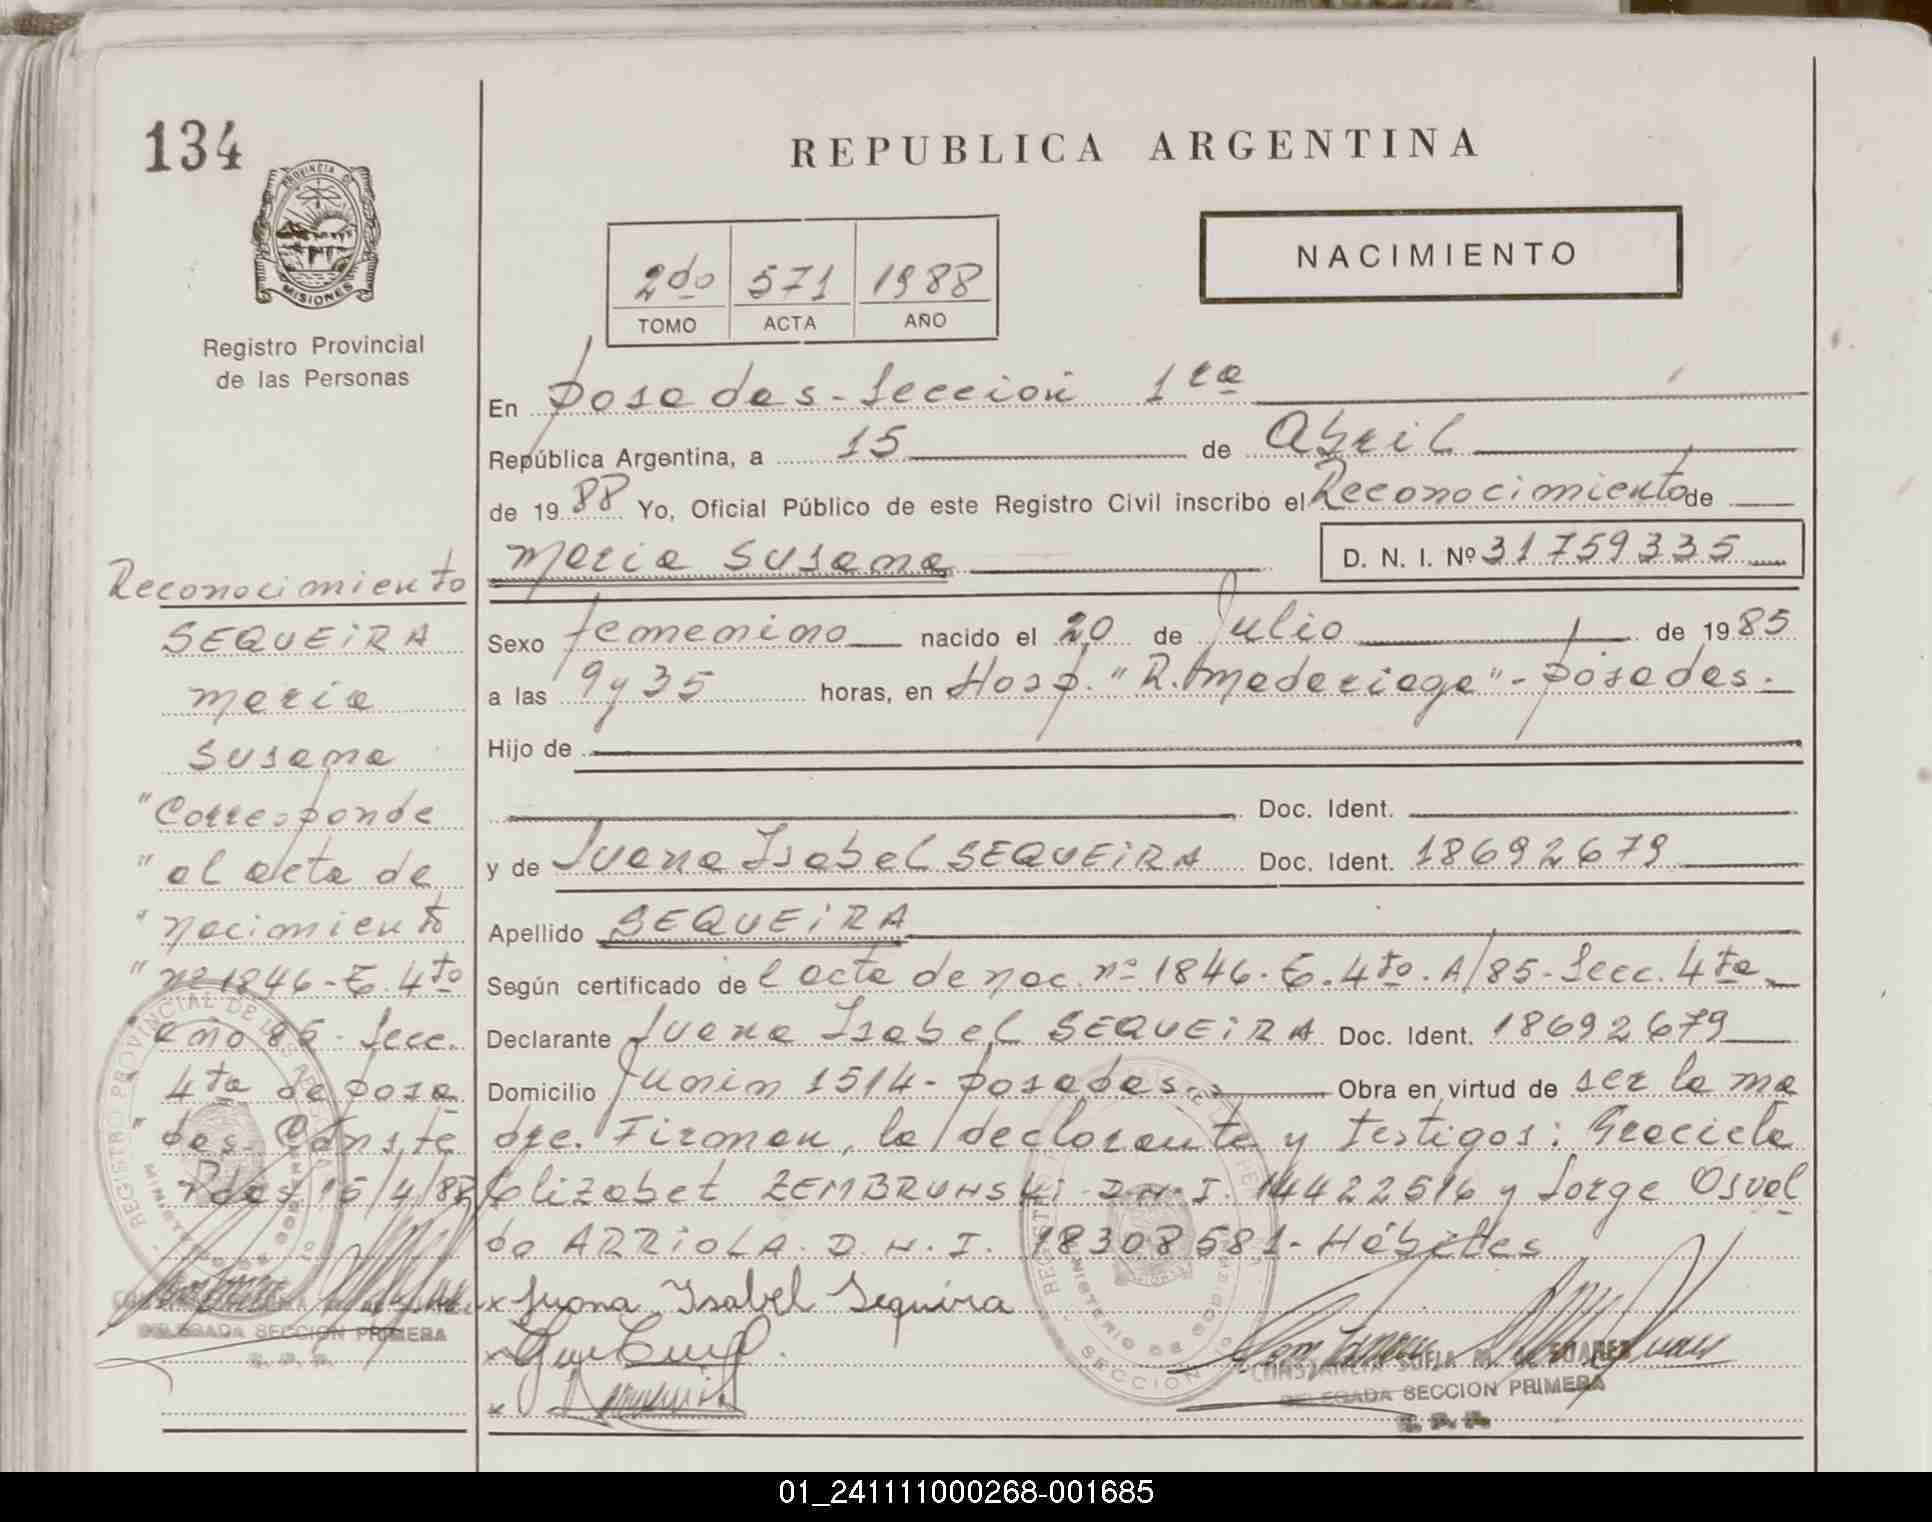 134
REPUBLICA ARGENTINA
PROVINCIA DE
MISIONES
Registro Provincial
de las Personas
NACIMIENTO
2do 571 1988
TOMO ACTA AÑO
En Posadas - Sección 1ra
República Argentina, a 15 de Abril
de 1988 Yo, Oficial Público de este Registro Civil inscribo el Reconocimiento de
Maria Susana D. N. I. Nº 31759335
Sexo femenino nacido el 20 de Julio de 1985
a las 9 y 35 horas, en Hosp. "R. Madariaga" - Posadas.
Hijo de
Doc. Ident.
y de Juana Isabel SEQUEiRA Doc. Ident. 18692679
Apellido SEQUEiRA
Según certificado de l acta de nac. nº 1846. T. 4to. A/85 - Secc. 4ta
Declarante Juana Isabel SEQUEiRA Doc. Ident. 18692679
Domicilio Junin 1514 - Posadas. Obra en virtud de ser la ma
dre. Firman, la declarante y testigos: Graciela
Elizabet ZEMBRUNSKi. D.N.I. 14422516 y Jorge Osval
do ARRiOLA. D.N.I. 18308581 - Hábiles
x Juana Isabel Sequira
x
x
CONSTANCIA SOFIA M. DE SUAREZ
DELEGADA SECCION PRIMERA
R. P. P.
Reconocimiento
SEQUEiRA
Maria
Susana
"Corresponde
" al acta de
" nacimiento
" nº 1846 - T. 4to
año 85 - Secc.
4ta de Posa
" das. Conste
Pdas 15/4/88
DELEGADA SECCION PRIMERA
R. P. P.
01_241111000268-001685